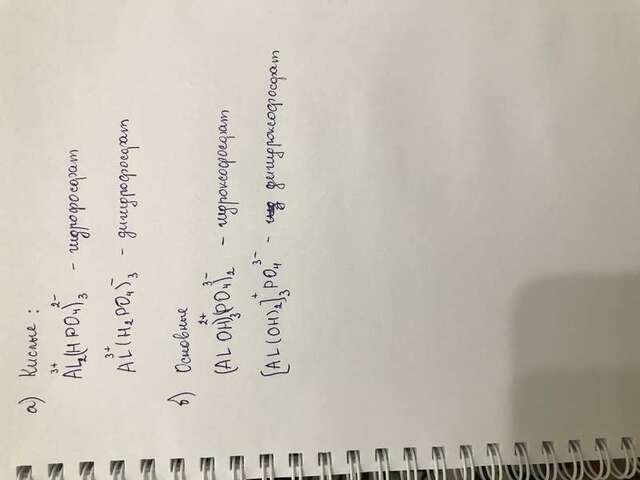 а) Кислые :
Al₂³⁺(HPO₄)₃²⁻ – гидрофосфат
Al³⁺(H₂PO₄)₃⁻ – дигидрофосфат
б) Основные
(AlOH)₃²⁺(PO₄)₂³⁻ – гидроксофосфат
[Al(OH)₂]₃⁺PO₄³⁻ – дигидроксофосфат